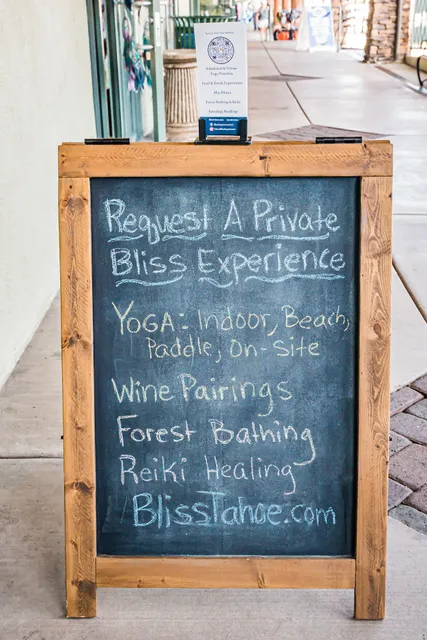 Request A Private
Bliss Experience
YOGA: Indoor, Beach,
Paddle, On-Site
Wine Pairings
Forest Bathing
Reiki Healing
BlissTahoe.com